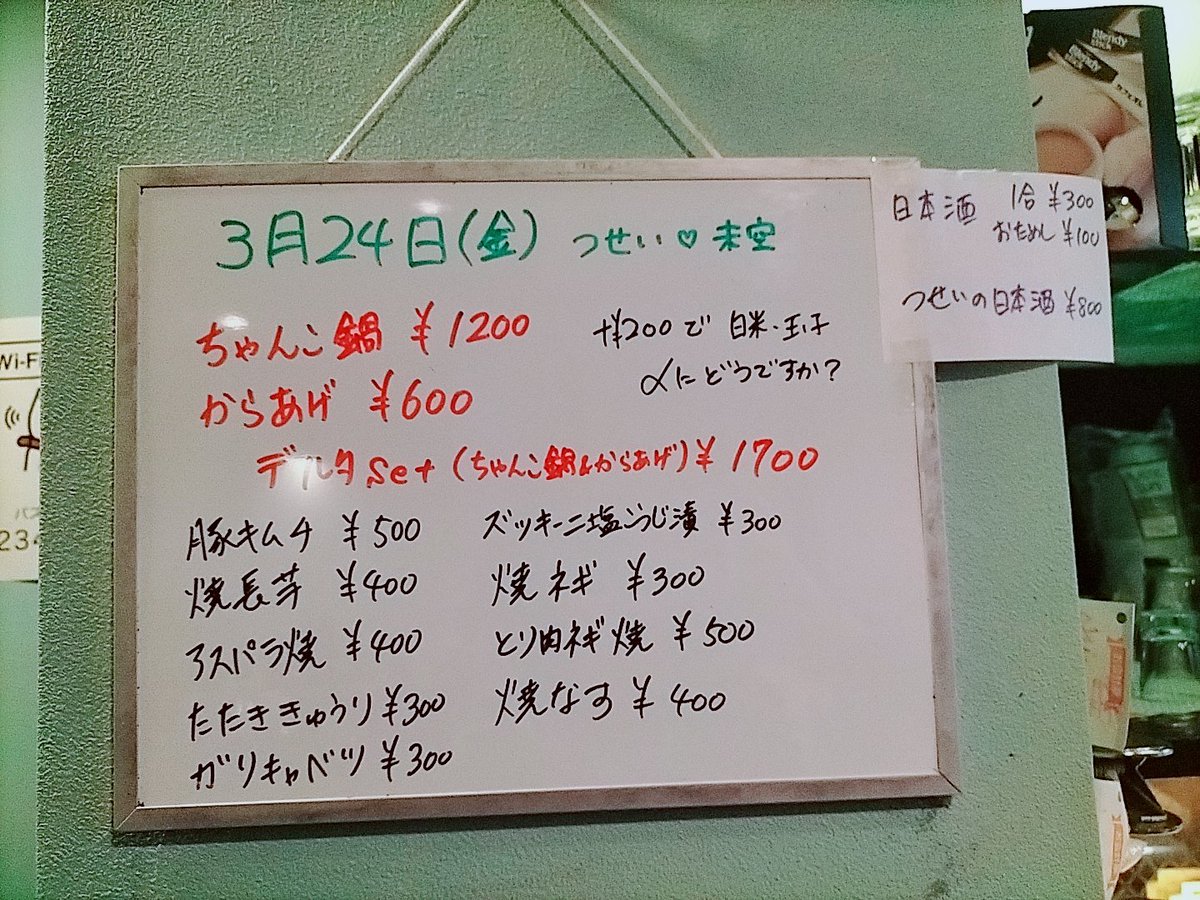 3月24日(金) つせい♡未空
ちゃんこ鍋 ¥1200
+¥200で 白米・玉子
〆にどうですか?
からあげ ¥600
デルタSet (ちゃんこ鍋&からあげ) ¥1700
豚キムチ ¥500
ズッキーニ塩こうじ漬 ¥300
焼長芋 ¥400
焼ネギ ¥300
アスパラ焼 ¥400
とり肉ネギ焼 ¥500
たたききゅうり ¥300
焼なす ¥400
ガリキャベツ ¥300
日本酒 1合 ¥300
おためし ¥100
つせいの日本酒 ¥800
Blendy
stick
Blendy
stick
Wi-F
234